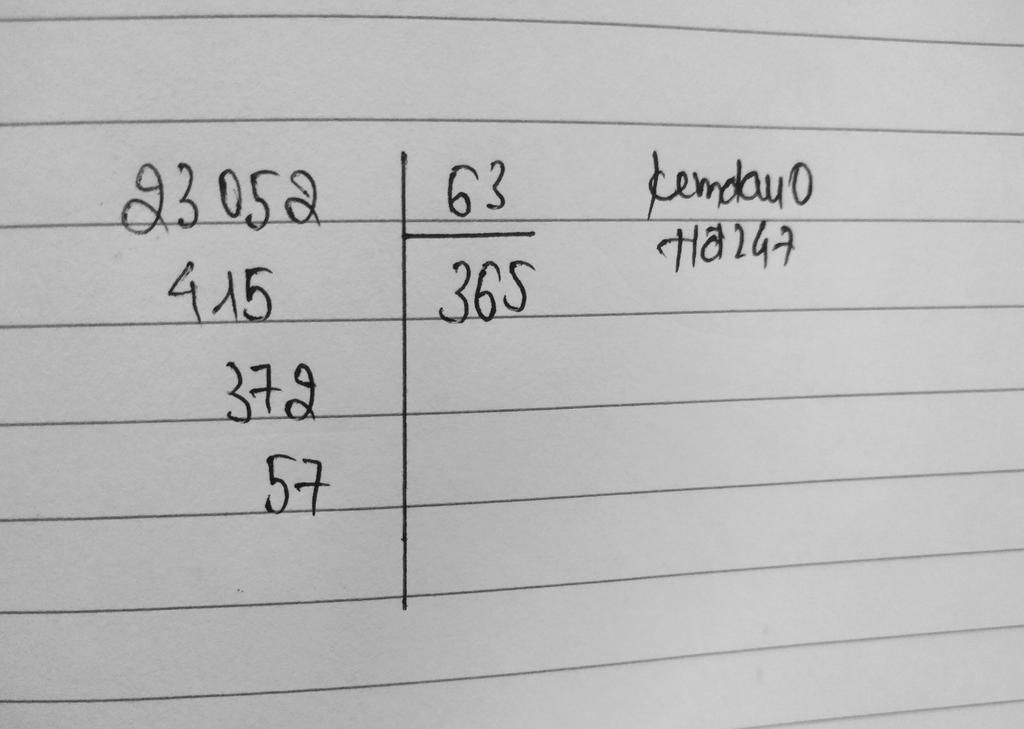 23 052 63
415 365
372
57
kemdau0
Hd247